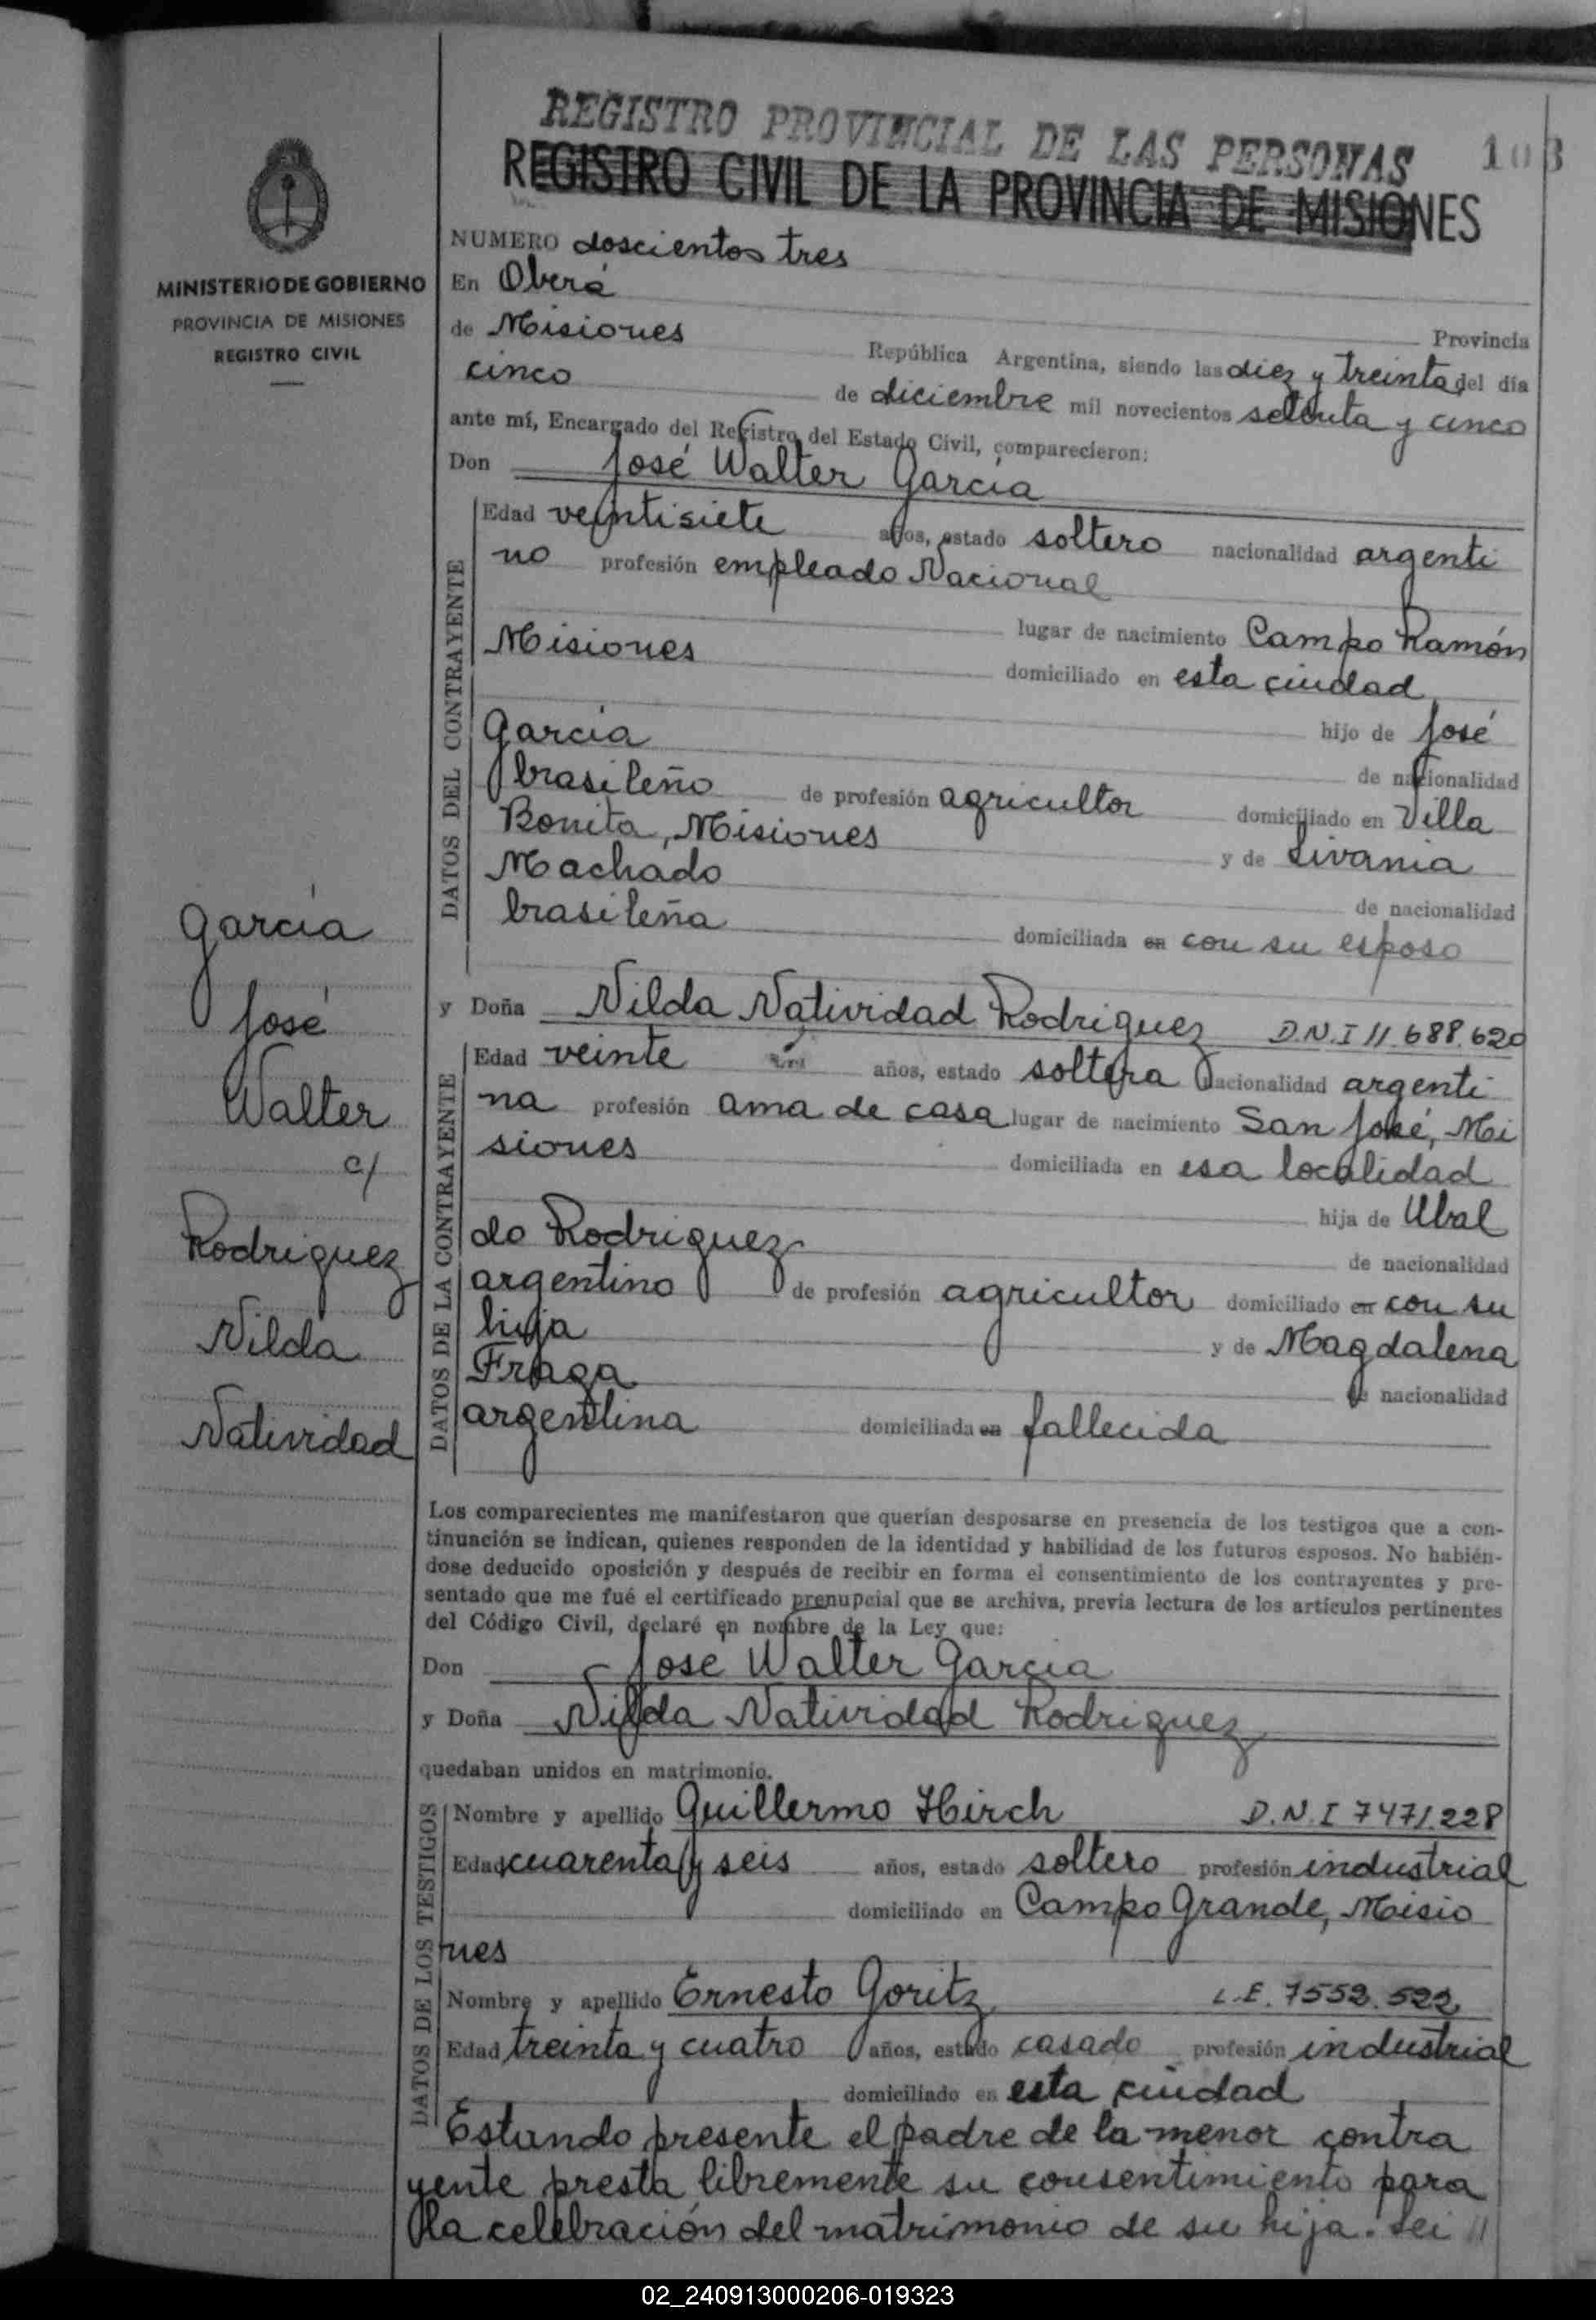 REGISTRO PROVINCIAL DE LAS PERSONAS
103
REGISTRO CIVIL DE LA PROVINCIA DE MISIONES
MINISTERIO DE GOBIERNO
PROVINCIA DE MISIONES
REGISTRO CIVIL
NUMERO doscientos tres
En Oberá
Provincia
de Misiones República Argentina, siendo las diez y treinta del día
cinco de diciembre mil novecientos setenta y cinco
ante mí, Encargado del Registro del Estado Civil, comparecieron:
Don José Walter García
DATOS DEL CONTRAYENTE
Edad veintisiete años, estado soltero nacionalidad argenti
no profesión empleado Nacional
lugar de nacimiento Campo Ramón
Misiones domiciliado en esta ciudad
hijo de José
García de nacionalidad
brasileño de profesión agricultor domiciliado en Villa
Bonita, Misiones y de Livania
Machado de nacionalidad
brasileña domiciliada en con su esposo
y Doña Nilda Natividad Rodriguez D.N.I 11.688.620
DATOS DE LA CONTRAYENTE
Edad veinte años, estado soltera nacionalidad argenti
na profesión ama de casa lugar de nacimiento San José, Mi
siones domiciliada en esa localidad
hija de Ubal
do Rodriguez de nacionalidad
argentino de profesión agricultor domiciliado en con su
hija y de Magdalena
Fraga de nacionalidad
argentina domiciliada en fallecida
García
José
Walter
c/
Rodriguez
Nilda
Natividad
Los comparecientes me manifestaron que querían desposarse en presencia de los testigos que a con-
tinuación se indican, quienes responden de la identidad y habilidad de los futuros esposos. No habién-
dose deducido oposición y después de recibir en forma el consentimiento de los contrayentes y pre-
sentado que me fué el certificado prenupcial que se archiva, previa lectura de los artículos pertinentes
del Código Civil, declaré en nombre de la Ley que:
Don Jose Walter Garcia
y Doña Nilda Natividad Rodriguez
quedaban unidos en matrimonio.
DATOS DE LOS TESTIGOS
Nombre y apellido Guillermo Hirch D.N.I 7471.228
Edad cuarenta y seis años, estado soltero profesión industrial
domiciliado en Campo Grande, Misio
nes
Nombre y apellido Ernesto Goritz L.E. 7552.522
Edad treinta y cuatro años, estado casado profesión industrial
domiciliado en esta ciudad
Estando presente el padre de la menor contra
yente presta libremente su consentimiento para
la celebración del matrimonio de su hija. Lei //
02_240913000206-019323